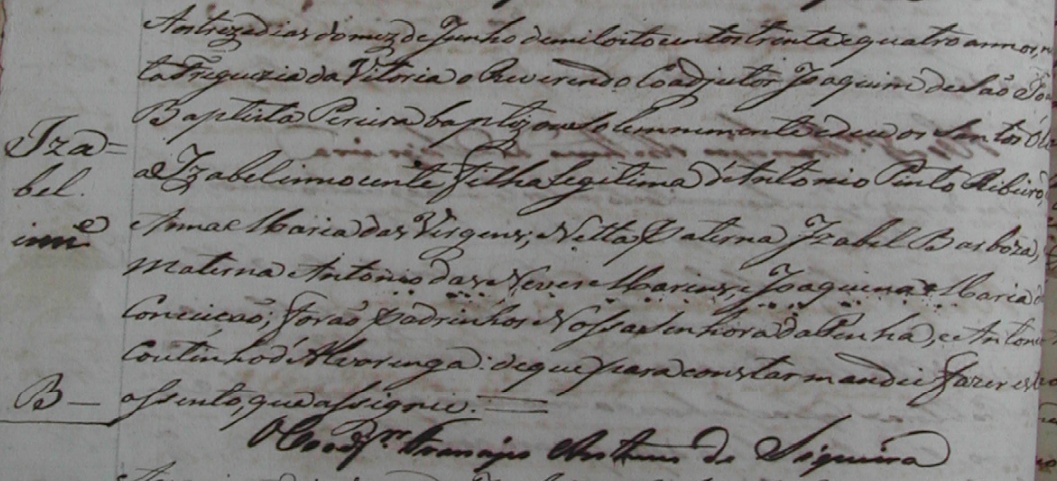 Aos treze dias do mez de Junho de mil oitocentos trinta e quatro annos, n
ta Freguezia da Vitoria o Reverendo Coadjutor Joaquim de São Jo
Baptista Pereira baptizou solemnemente e deu os Santos Ol
Iza=
bel.
inn.e
a Izabel innocente, filha legitima d'Antonio Pinto Ribeiro,
e Anna Maria das Virgens; Netta Paterna Izabel Barboza,
Materna Antonio das Neves Marins, e Joaquina Maria
Conceicaõ; foraõ padrinhos Nossa Senhora da Penha, e Anton
Coutinho d'Alvorenga: de que para constar mandei fazer es
B—
assento, que assignei.
O Coadj.or Antunes de Siqueira